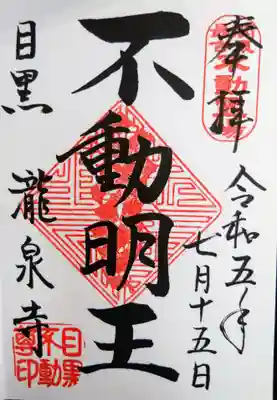 奉拝
令和五年
七月十五日
不動明王
目黒 龍泉寺
目黒
不動
尊印